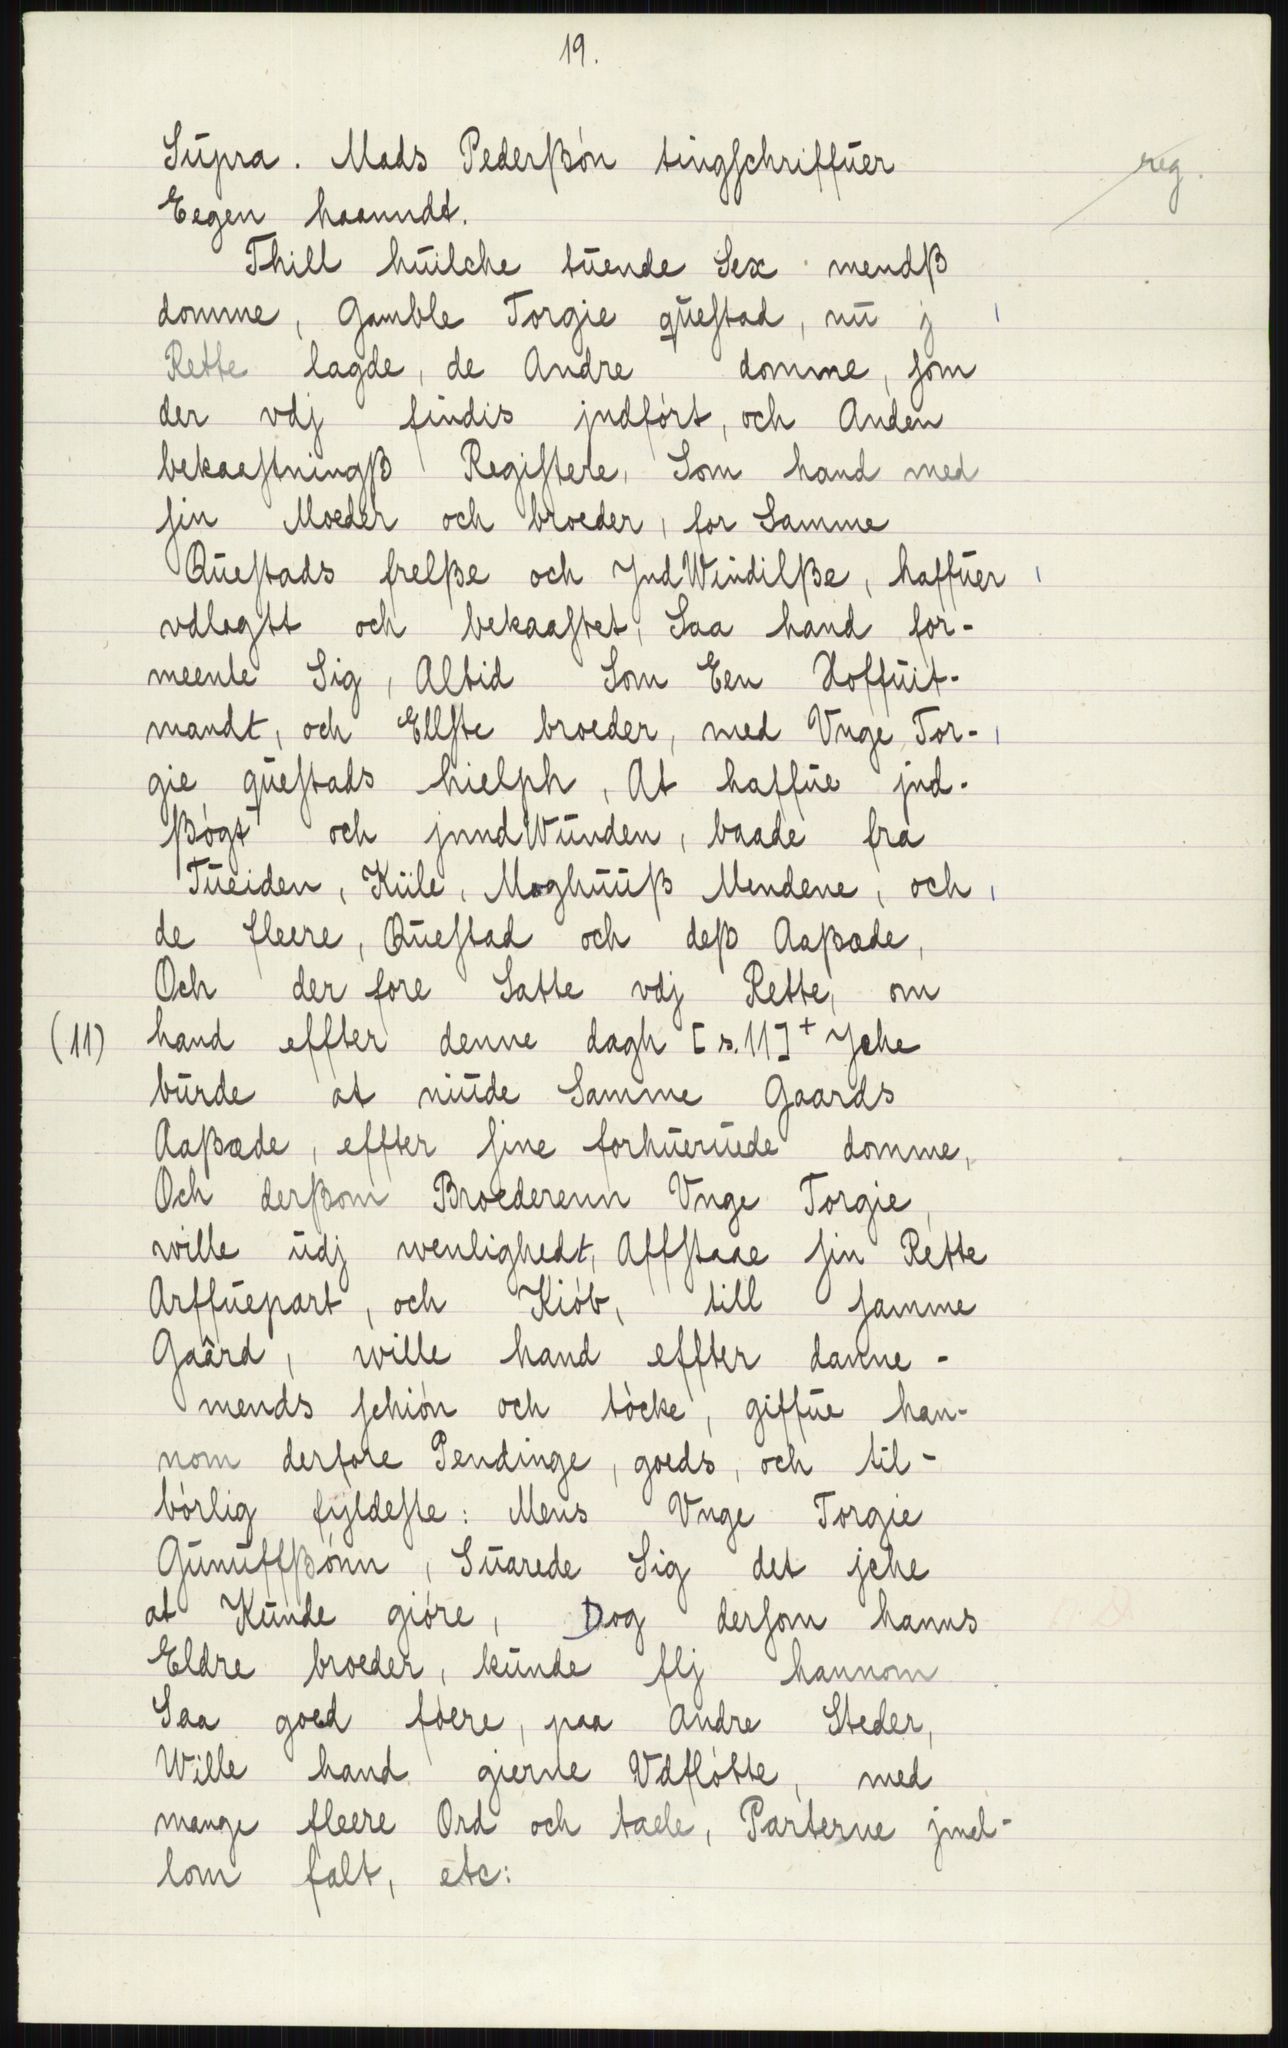 19.
reg.
Supra. Mads Pederßón tingschriffuer
Eegen haanndt.
Thill huilche tuende Sex mendß
domme, Gamble Torgie questad, nu j
Rette lagde, de Andre domme, som
der vdj findis jndfórt, och Anden
bekaastningß Registere, Som hand med
sin Moeder och broeder, for Samme
Questads frelße och JndWindilße, haffuer
vdlagtt och bekaastet, Saa hand for-
meente Sig, Altid Som Een Hoffuit-
mandt, och Ellste broeder, med Vnge Tor-
gie questads hielph, At haffue jnd-
ßógt och jnndWunden, baade fra
Tueiden, Kiile, Moghuuß Mendene, och
de fleere, Questad och deß Aaßæde,
Och der fore Satte vdj Rette, om
(11) hand effter denne dagh [s.11]+ Jche
burde at niude Samme Gaards
Aaßæde, effter sine forhueruede domme,
Och derßom Broederenn Vnge Torgie,
wille udj wenlighedt, Affstaae sin Rette
Arffuepart, och Kiób, till samme
Gaård, wille hand effter danne-
mends schión och tócke, giffue han-
nom derfore Pendinge, goeds, och til-
bórlig fyldeste: Mens Vnge Torgie
Gunuffßónn, Suarede Sig det jche
at Kunde gióre, Dog dersom hanns
Eldre broeder, kunde flj hannom
Saa goed fóere, paa Andre Steder,
Wille hand gierne Vdflótte, med
mange fleere Ord och taele, Parterne jmel-
lom falt, etc: